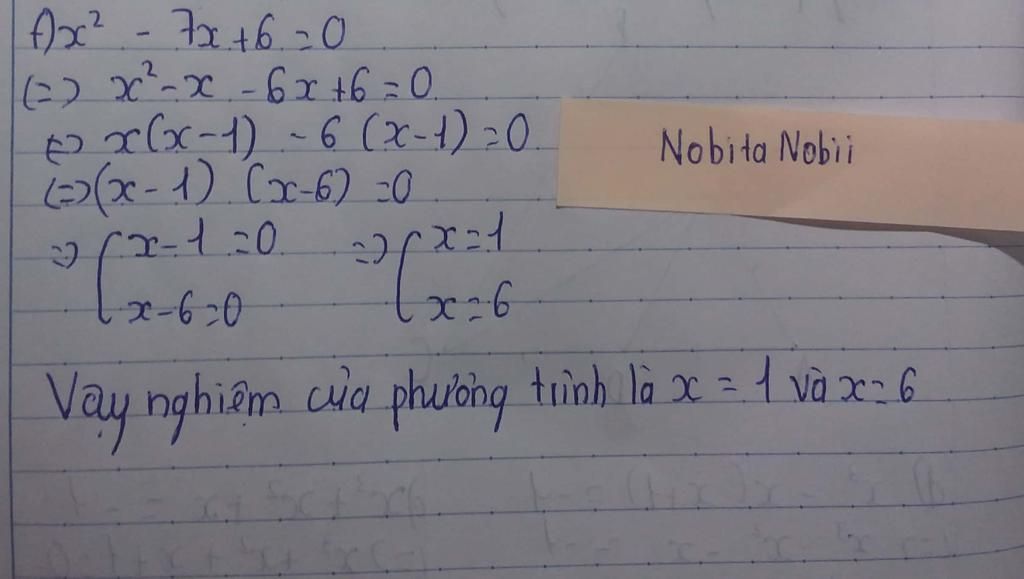 1) x² - 7x + 6 = 0
(=) x² - x - 6x + 6 = 0
(=) x(x - 1) - 6 (x - 1) = 0
(=) (x - 1) (x - 6) = 0
=) [ x - 1 = 0 =) [ x = 1
x - 6 = 0 x = 6
Nobita Nobii
Vậy nghiệm của phương trình là x = 1 và x = 6